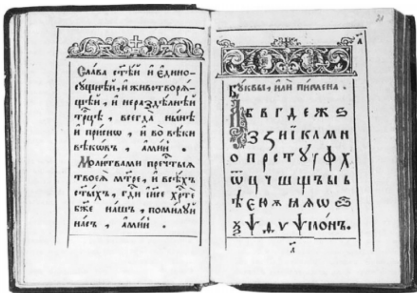 Сла́ва ст҃ѣ́й и҆ є҆дино-
сꙋ́щнѣй, и҆ животворѧ́-
щей, и҆ нераздѣ́лнѣй
трⷪ҇цѣ, всегда̀ ны́нѣ
и҆ при́снѡ, и҆ во вѣ́ки
вѣкѡ́въ, а҆ми́нь.
Моли́твами пречⷭ҇тыѧ
твоеѧ̀ мт҃ре, и҆ всѣ́хъ
ст҃ы́хъ, гдⷭ҇и і҆и҃се хрⷭ҇тѐ
бж҃е на́шъ, поми́лꙋй
на́съ, а҆ми́нь.
Бꙋ́квы, и҆лѝ пи́смена.
б в г д е ж ѕ
з и к л м н
о п р с т ꙋ ф х
ѿ ц ч ш щ ъ ы ь
ѣ ю ѧ ѡ
ѯ ѱ ѵ